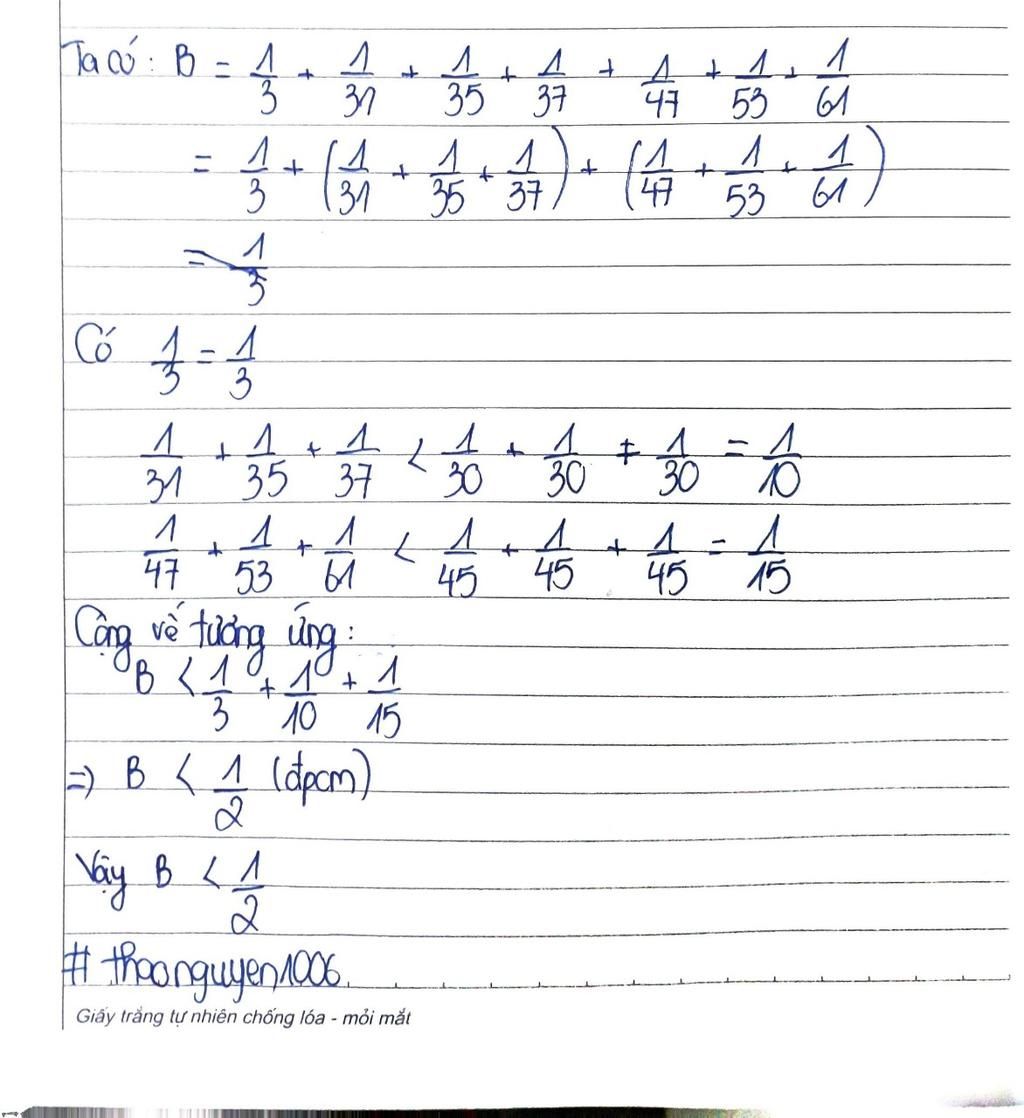 Ta có: B = 1/3 + 1/31 + 1/35 + 1/37 + 1/47 + 1/53 + 1/61
= 1/3 + (1/31 + 1/35 + 1/37) + (1/47 + 1/53 + 1/61)
= 1/3
Có 1/3 = 1/3
1/31 + 1/35 + 1/37 < 1/30 + 1/30 + 1/30 = 1/10
1/47 + 1/53 + 1/61 < 1/45 + 1/45 + 1/45 = 1/15
Cộng vế tương ứng:
B < 1/3 + 1/10 + 1/15
=> B < 1/2 (đpcm)
Vậy B < 1/2
# thaonguyen1006
Giấy trắng tự nhiên chống lóa - mỏi mắt